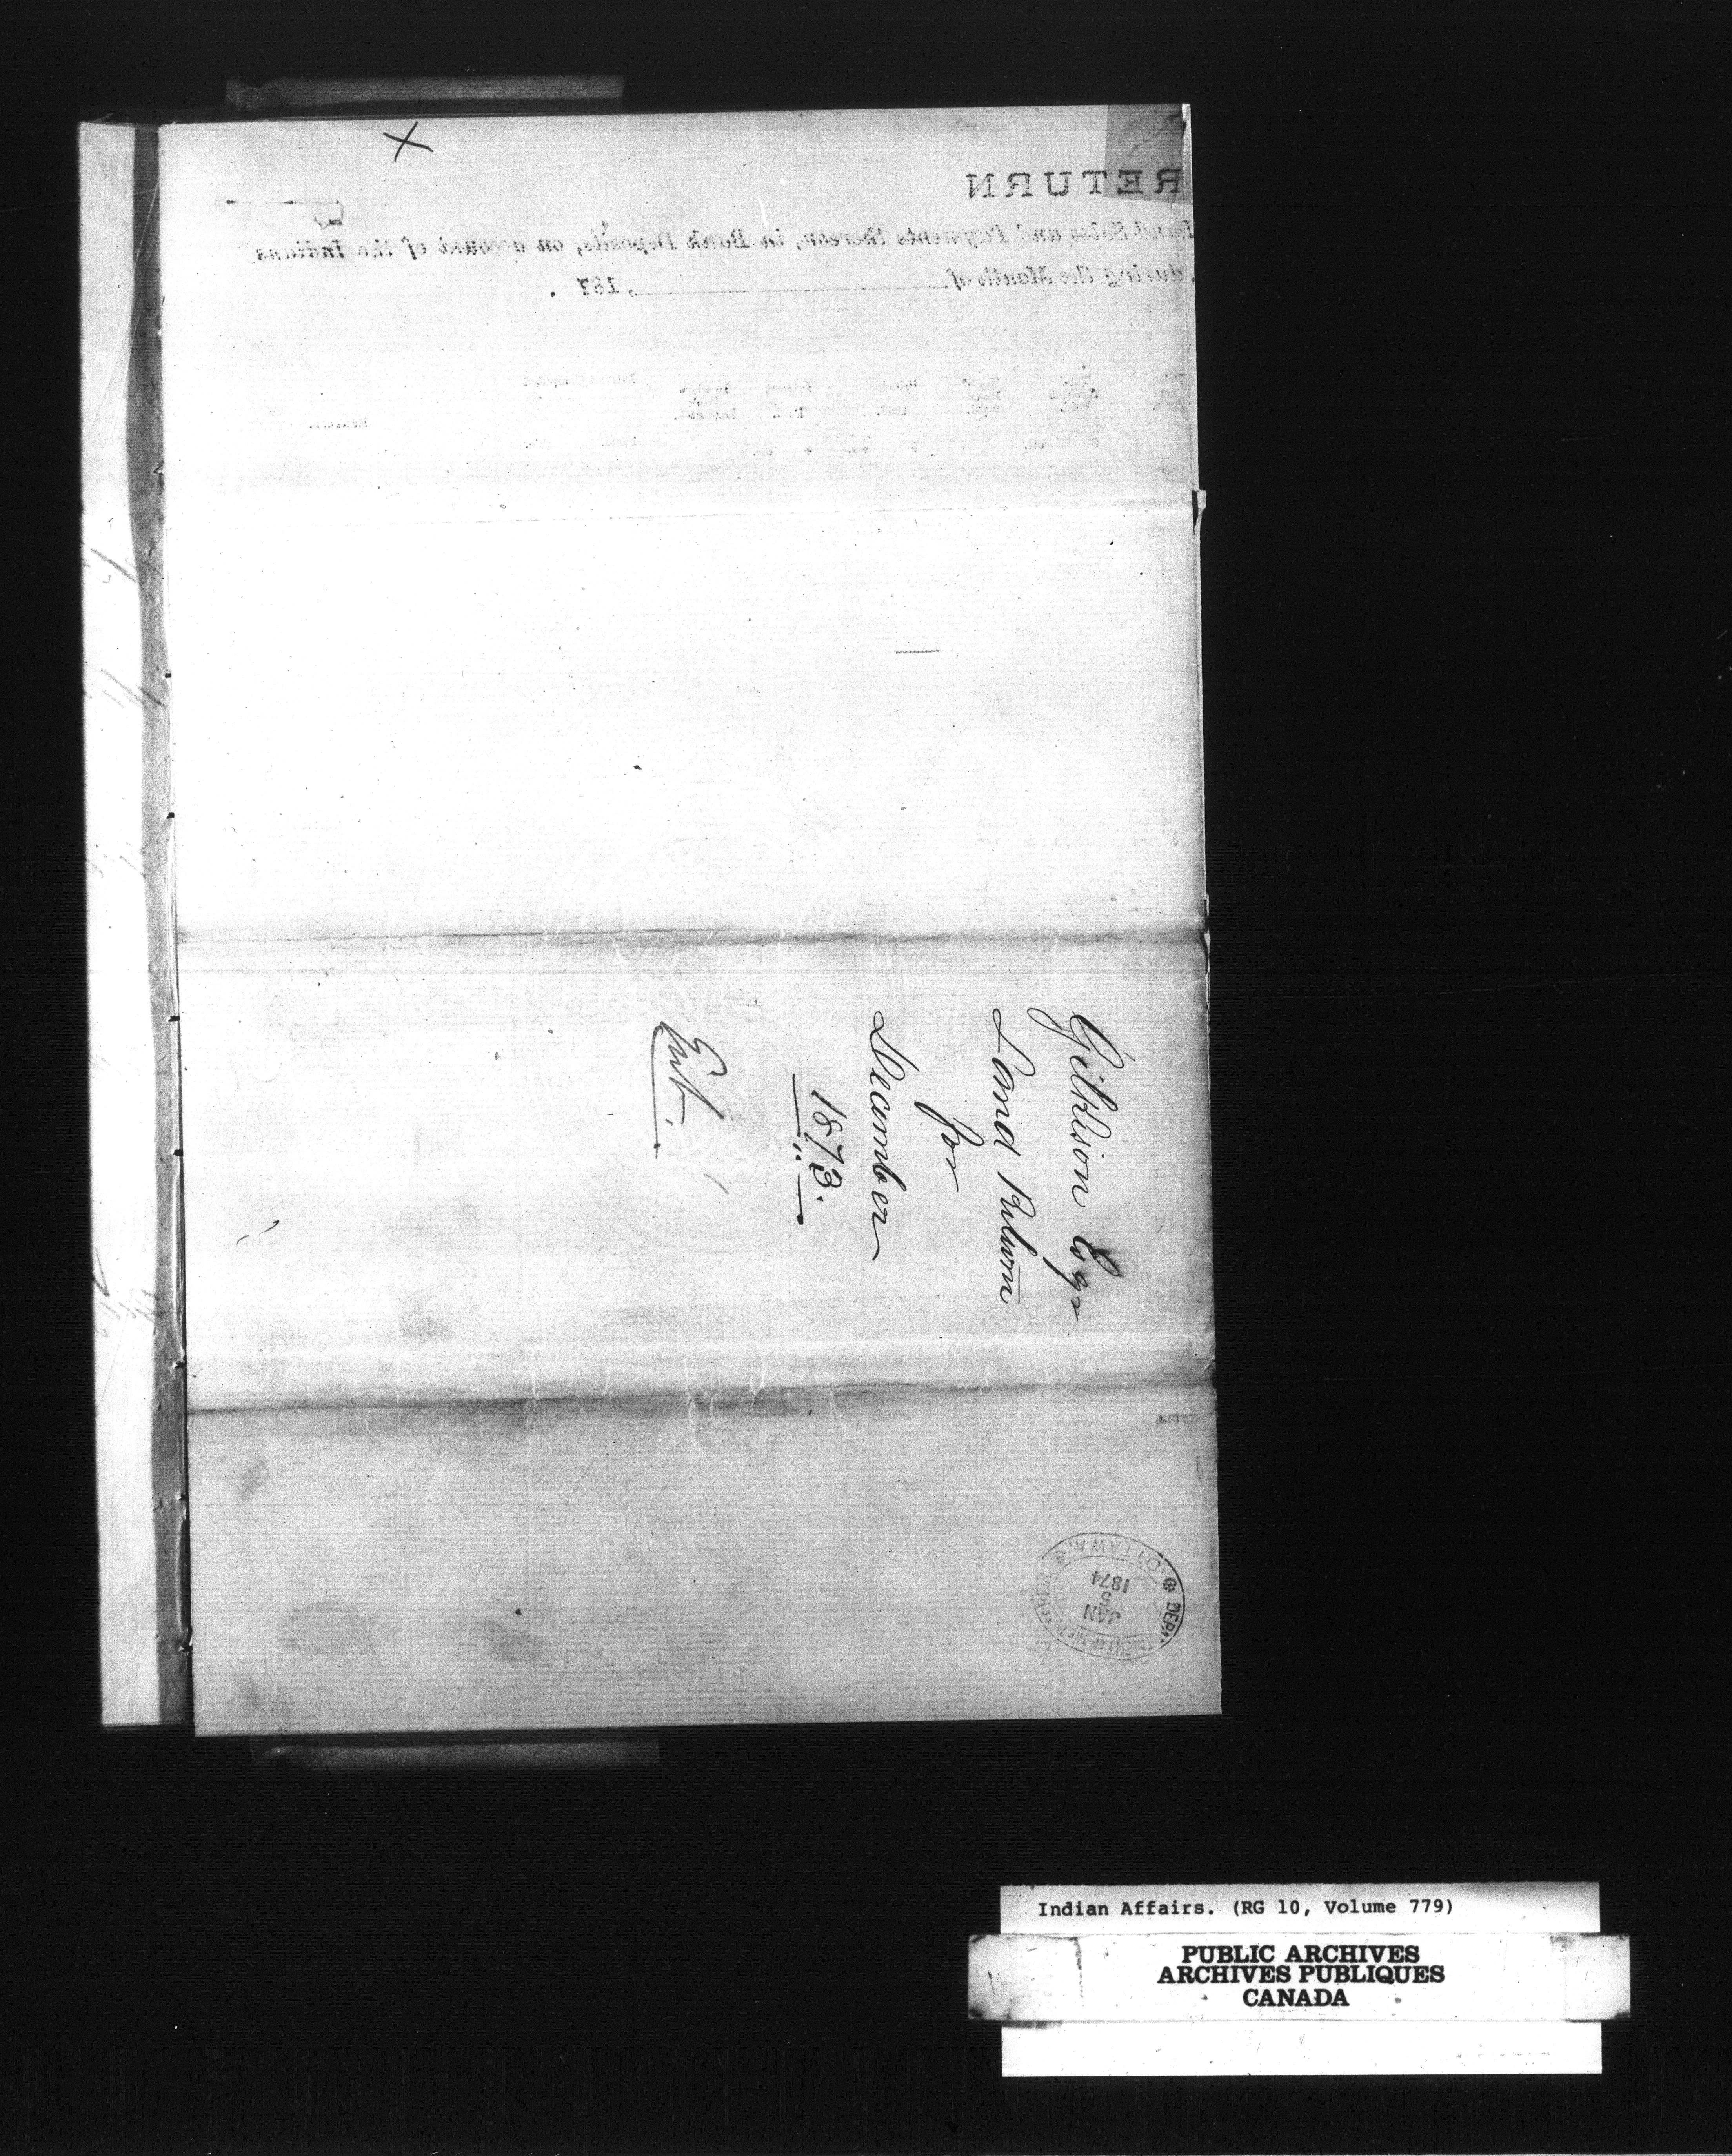 RETURN
Land Sales and Payments thereon, in Bank Deposits, on account of the Indians
during the Month of , 187 .
Gilkison Esqr
Land Return
for
December
1873.
Ent.
DEPARTMENT OF THE INTERIOR
OTTAWA
JAN
5
1874
Indian Affairs. (RG 10, Volume 779)
PUBLIC ARCHIVES
ARCHIVES PUBLIQUES
CANADA